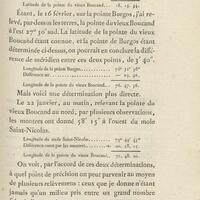 Latitude de la pointe du vieux Boucand... 18. 15. 34.
Étant, le 16 février, sur la pointe Burgos, j'ai re-
levé, par-dessus les terres, la pointe du vieux Boucand
à l'est 27° 50' sud. La latitude de la pointe du vieux
Boucand étant connue, et la pointe de Burgos étant
déterminée ci-dessus, on pourrait en conclure la diffé-
rence de méridien entre ces deux points, et on aurait
Longitude de la pointe Burgos
Différence
Longitude de la pointe du vieux Boucand
Mais voici une détermination plus directe.
Le 22 janvier, au matin, relevant la pointe du
vieux Boucand au nord, par plusieurs observations,
les montres ont donné 58' 15" à l'ouest du mole
Saint-Nicolas.
Longitude du mole Saint-Nicolas
Différence
Longitude de la pointe du vieux Boucand
On voit, par l'accord de ces deux déterminations,
à quel point de précision on peut parvenir au moyen
de plusieurs relèvements : ceux que je donne n'étant
jamais qu'un milieu pris entre un grand nombre